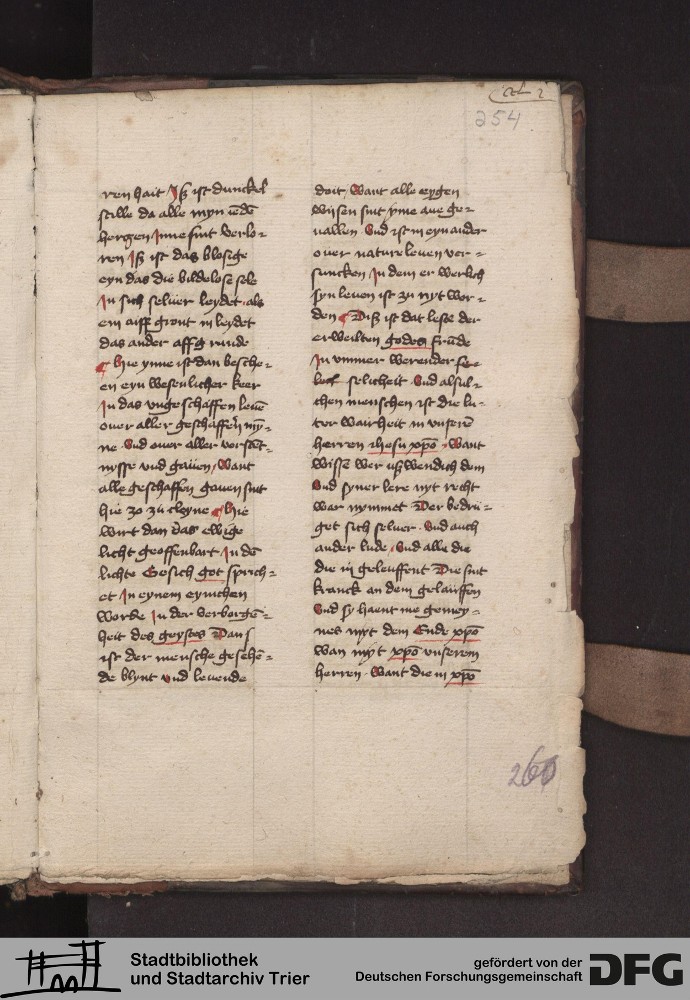 254
ren hait Jß ist dunckel
stille da alle myn iēdē
hergen Jnne sint verlo-
ren Jß ist das blosge
eyn das die bildelose sele
Jn sich seluer leydet als
ein aiff gront in leydet
das ander affg runde
hie ynne ist dan besche-
en eyn wesenlicher keer
Jn das vngeschaffen leuē
ouer aller geschaffen my-
ne Vnd ouer aller vorstēt-
nysse vnd gauen Want
alle geschaffen gauen sint
hie zo zu cleyne hie
wirt dan das ewige
licht geoffenbart Jn dē
lichte Gesich got sprich-
et Jn eynem eynichen
worde Jn der verborgē-
heit des geystes Dan s
ist der mensche gesehē-
de blynt vnd leuende
doit Want alle eygen
wijsen sint yme aue ge-
uallen Vnd ist in eyn ander
ouer nature leuen ver-
suncken Jn dem er werlich
syn leuen ist zu nyt wor-
den Diß ist dat leste der
erweilten godes frūde
Jn vmmer werender
selicheit Vnd alsul-
chen menschen ist die lu-
ter wairheit in vnserē
herren ihesu xpō Want
wissē wer vßwendich dem
Vnd syner lere nyt recht
war nymmet Der bedru-
get sich seluer Vnd auch
ander lude Vnd alle die
die in geleuffent Die sint
kranck an dem gelauffen
Vnd sy haent me gemey-
nes myt dem Ende xpō
wan myt xpō vnserem
herren Want die in xpō
260
Stadtbibliothek
und Stadtarchiv Trier
gefördert von der
Deutschen Forschungsgemeinschaft
DFG